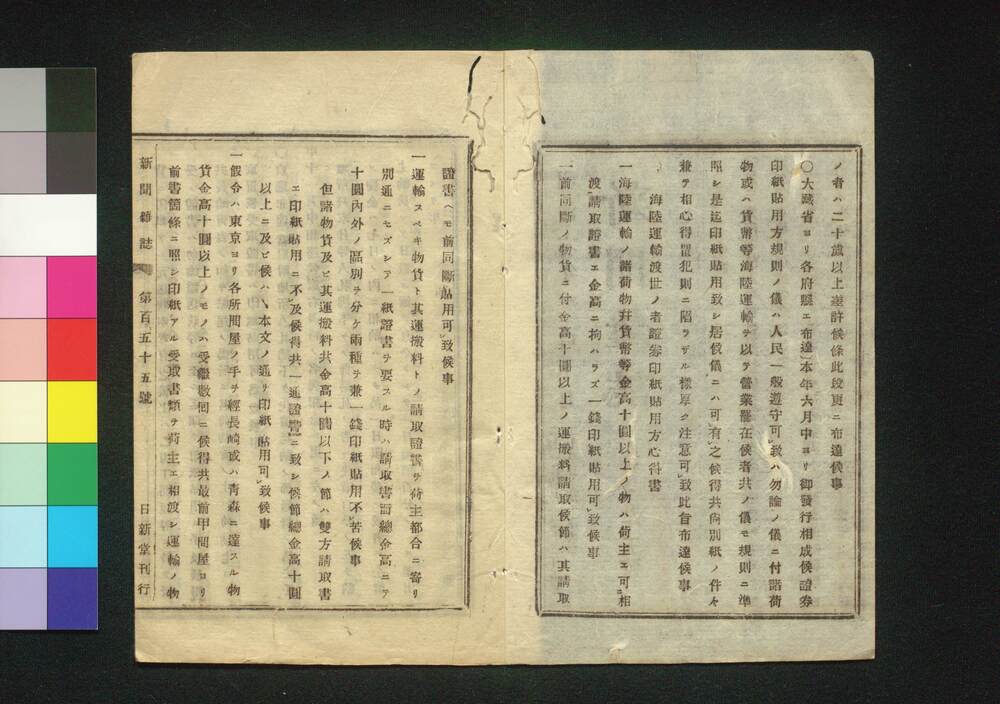 ノ者ハ二十歲以上差許候條此段更ニ布達候事
〇大藏省ヨリ各府縣エ布達本年六月中ヨリ御發行相成候證券
印紙貼用方規則ノ儀ハ人民一般遵守可致ハ勿論ノ儀ニ付諸荷
物或ハ貨幣等海陸運輸ヲ以テ營業罷在候者共ノ儀モ規則ニ準
照シ是迄印紙貼用致シ居候儀ニハ可有之候得共尙別紙ノ件々
兼テ相心得置犯則ニ陷ラザル樣厚ク注意可致此旨布達候事
海陸運輸渡世ノ者證券印紙貼用方心得書
一海陸運輸ノ諸荷物幷貨幣等金高十圓以上ノ物ハ荷主エ可相
渡請取證書エ金高ニ拘ハラズ一錢印紙貼用可致候事
一前同斷ノ物貨ニ付金高十圓以上ノ運搬料請取候節ハ其請取
證書ヘモ前同斷貼用可致候事
一運輸スベキ物貨ト其運搬料トノ請取證書ヲ荷主都合ニ寄リ
別通ニセズシテ一紙證書ヲ要スル時ハ請取書面總金高ニテ
十圓內外ノ區別ヲ分ケ兩種ヲ兼一錢印紙貼用不苦候事
但諸物貨及ビ其運搬料共金高十圓以下ノ節ハ雙方請取書
エ印紙貼用ニ不及候得共一通證書ニ致シ候節總金高十圓
以上ニ及ビ候ハヽ本文ノ通リ印紙貼用可致候事
一假令ハ東京ヨリ各所問屋ノ手ヲ經長崎或ハ靑森ニ達スル物
貨金高十圓以上ノモノハ受繼數囘ニ候得共最前甲問屋ヨリ
前書箇條ニ照シ印紙アル受取書類ヲ荷主エ相渡シ運輸ノ物
新聞雜誌 第百五十五號 日新堂刊行